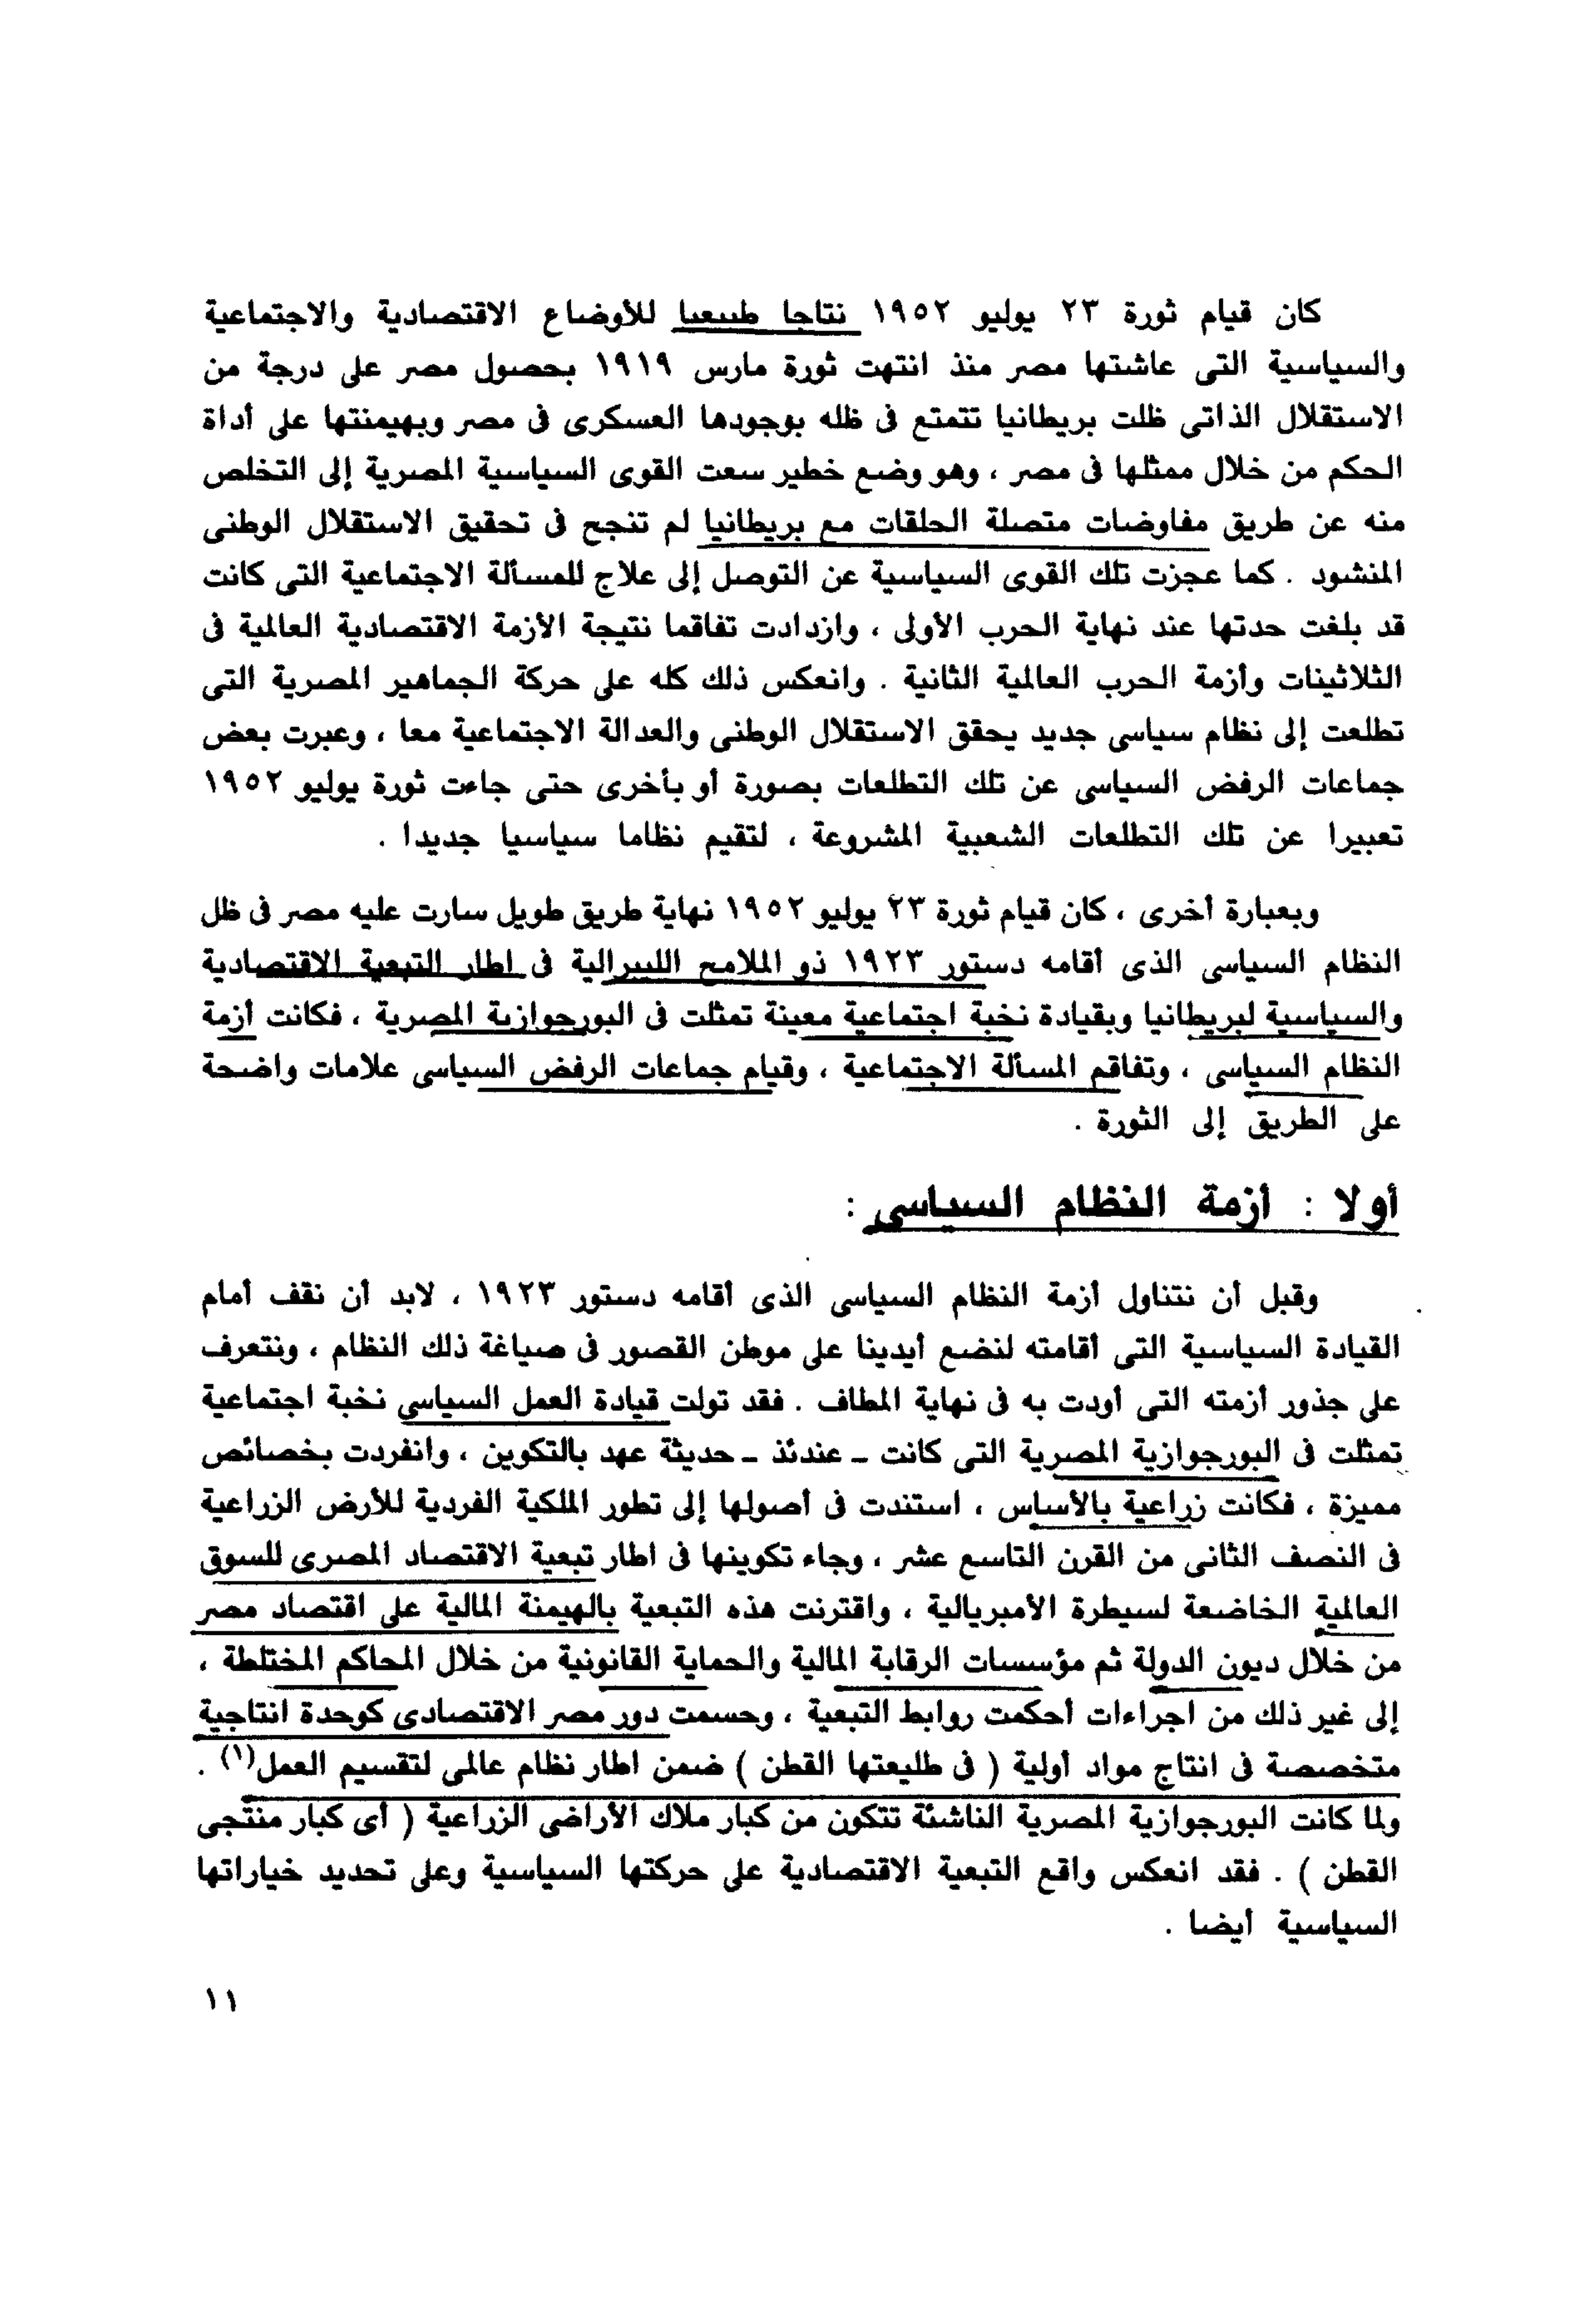 كان قيام ثورة ٢٣ يوليو ١٩٥٢ نتاجا طبيعيا للأوضاع الاقتصادية والاجتماعية
والسياسية التى عاشتها مصر منذ انتهت ثورة مارس ١٩١٩ بحصول مصر على درجة من
الاستقلال الذاتى ظلت بريطانيا تتمتع فى ظله بوجودها العسكرى فى مصر وبهيمنتها على أداة
الحكم من خلال ممثلها فى مصر ، وهو وضع خطير سعت القوى السياسية المصرية إلى التخلص
منه عن طريق مفاوضات متصلة الحلقات مع بريطانيا لم تنجح فى تحقيق الاستقلال الوطنى
المنشود . كما عجزت تلك القوى السياسية عن التوصل إلى علاج للمسألة الاجتماعية التى كانت
قد بلغت حدتها عند نهاية الحرب الأولى ، وازدادت تفاقما نتيجة الأزمة الاقتصادية العالمية فى
الثلاثينات وأزمة الحرب العالمية الثانية . وانعكس ذلك كله على حركة الجماهير المصرية التى
تطلعت إلى نظام سياسى جديد يحقق الاستقلال الوطنى والعدالة الاجتماعية معا ، وعبرت بعض
جماعات الرفض السياسى عن تلك التطلعات بصورة أو بأخرى حتى جاءت ثورة يوليو ١٩٥٢
تعبيرا عن تلك التطلعات الشعبية المشروعة ، لتقيم نظاما سياسيا جديدا .
وبعبارة أخرى ، كان قيام ثورة ٢٣ يوليو ١٩٥٢ نهاية طريق طويل سارت عليه مصر فى ظل
النظام السياسى الذى أقامه دستور ١٩٢٣ ذو الملامح الليبرالية فى اطار التبعية الاقتصادية
والسياسية لبريطانيا وبقيادة نخبة اجتماعية معينة تمثلت فى البورجوازية المصرية ، فكانت أزمة
النظام السياسى ، وتفاقم المسألة الاجتماعية ، وقيام جماعات الرفض السياسى علامات واضحة
على الطريق إلى الثورة .
أولا : أزمة النظام السياسى :
وقبل أن نتناول أزمة النظام السياسى الذى أقامه دستور ١٩٢٣ ، لابد أن نقف أمام
القيادة السياسية التى أقامته لنضع أيدينا على موطن القصور فى صياغة ذلك النظام ، ونتعرف
على جذور أزمته التى أودت به فى نهاية المطاف . فقد تولت قيادة العمل السياسي نخبة اجتماعية
تمثلت فى البورجوازية المصرية التى كانت ـ عندئذ ـ حديثة عهد بالتكوين ، وانفردت بخصائص
مميزة ، فكانت زراعية بالأساس ، استندت فى أصولها إلى تطور الملكية الفردية للأرض الزراعية
فى النصف الثانى من القرن التاسع عشر ، وجاء تكوينها فى اطار تبعية الاقتصاد المصرى للسوق
العالمية الخاضعة لسيطرة الأمبريالية ، واقترنت هذه التبعية بالهيمنة المالية على اقتصاد مصر
من خلال ديون الدولة ثم مؤسسات الرقابة المالية والحماية القانونية من خلال المحاكم المختلطة ،
إلى غير ذلك من اجراءات أحكمت روابط التبعية ، وحسمت دور مصر الاقتصادى كوحدة انتاجية
متخصصة فى انتاج مواد أولية ( فى طليعتها القطن ) ضمن اطار نظام عالمى لتقسيم العمل(١) .
ولما كانت البورجوازية المصرية الناشئة تتكون من كبار ملاك الأراضى الزراعية ( أى كبار منتجى
القطن ) . فقد انعكس واقع التبعية الاقتصادية على حركتها السياسية وعلى تحديد خياراتها
السياسية أيضا .
١١